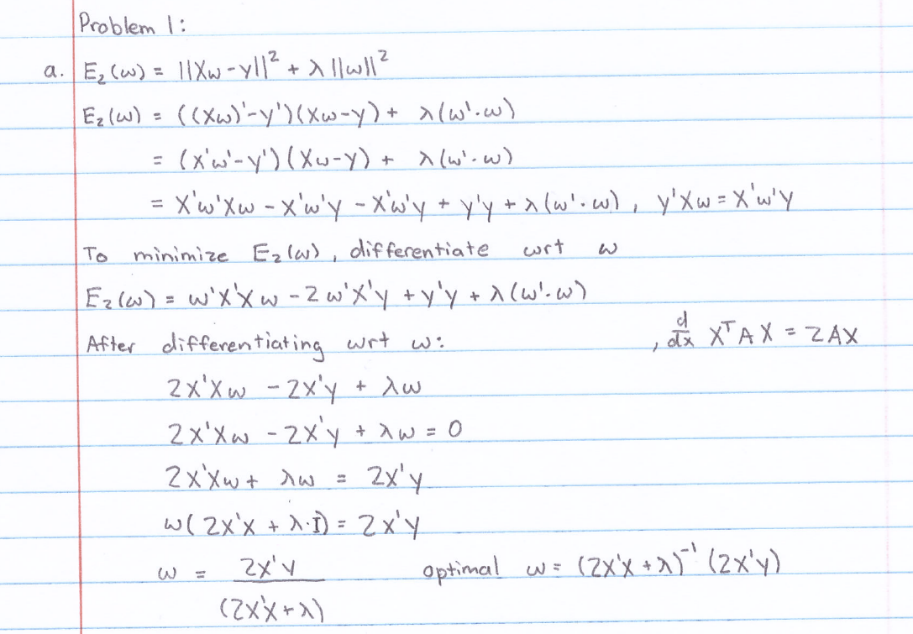 Problem 1:
a. E₂(w) = ||Xw-y||² + λ||w||²
E₂(w) = ((Xw)'-y')(Xw-y) + λ(w'·w)
= (x'w'-y')(Xw-y) + λ(w'·w)
= X'w'Xw - X'w'y - X'w'y + y'y + λ(w'·w), y'Xw = X'w'y
To minimize E₂(w), differentiate wrt w
E₂(w) = w'X'Xw - 2w'X'y + y'y + λ(w'·w)
After differentiating wrt w: , d/dx XᵀAX = 2AX
2X'Xw - 2X'y + λw
2X'Xw - 2X'y + λw = 0
2X'Xw + λw = 2X'y
w(2X'X + λ·I) = 2X'y
w = 2X'y / (2X'X + λ) optimal w = (2X'X + λ)⁻¹ (2X'y)